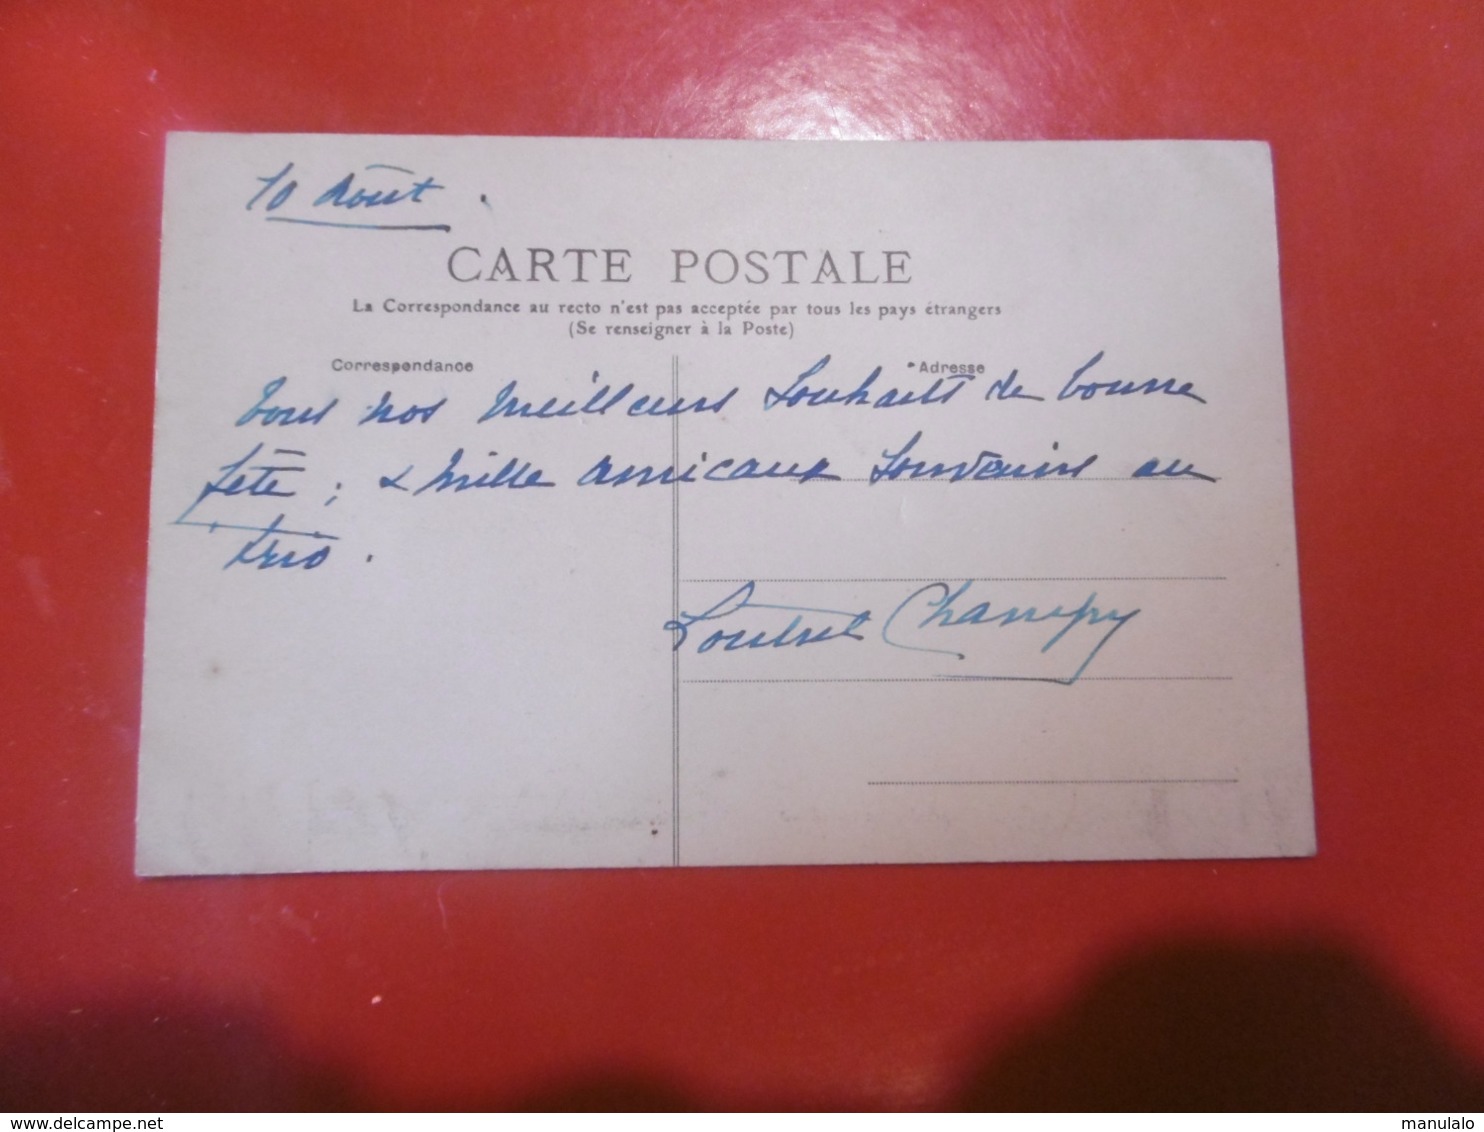 10 Août.
CARTE POSTALE
La Correspondance au recto n'est pas acceptée par tous les pays étrangers
(Se renseigner à la Poste)
Correspondance
Adresse
Tous nos meilleurs souhaits de bonne
fête ; & mille amicaux souvenirs au
trio.
Champy
delcampe.net
manulalo